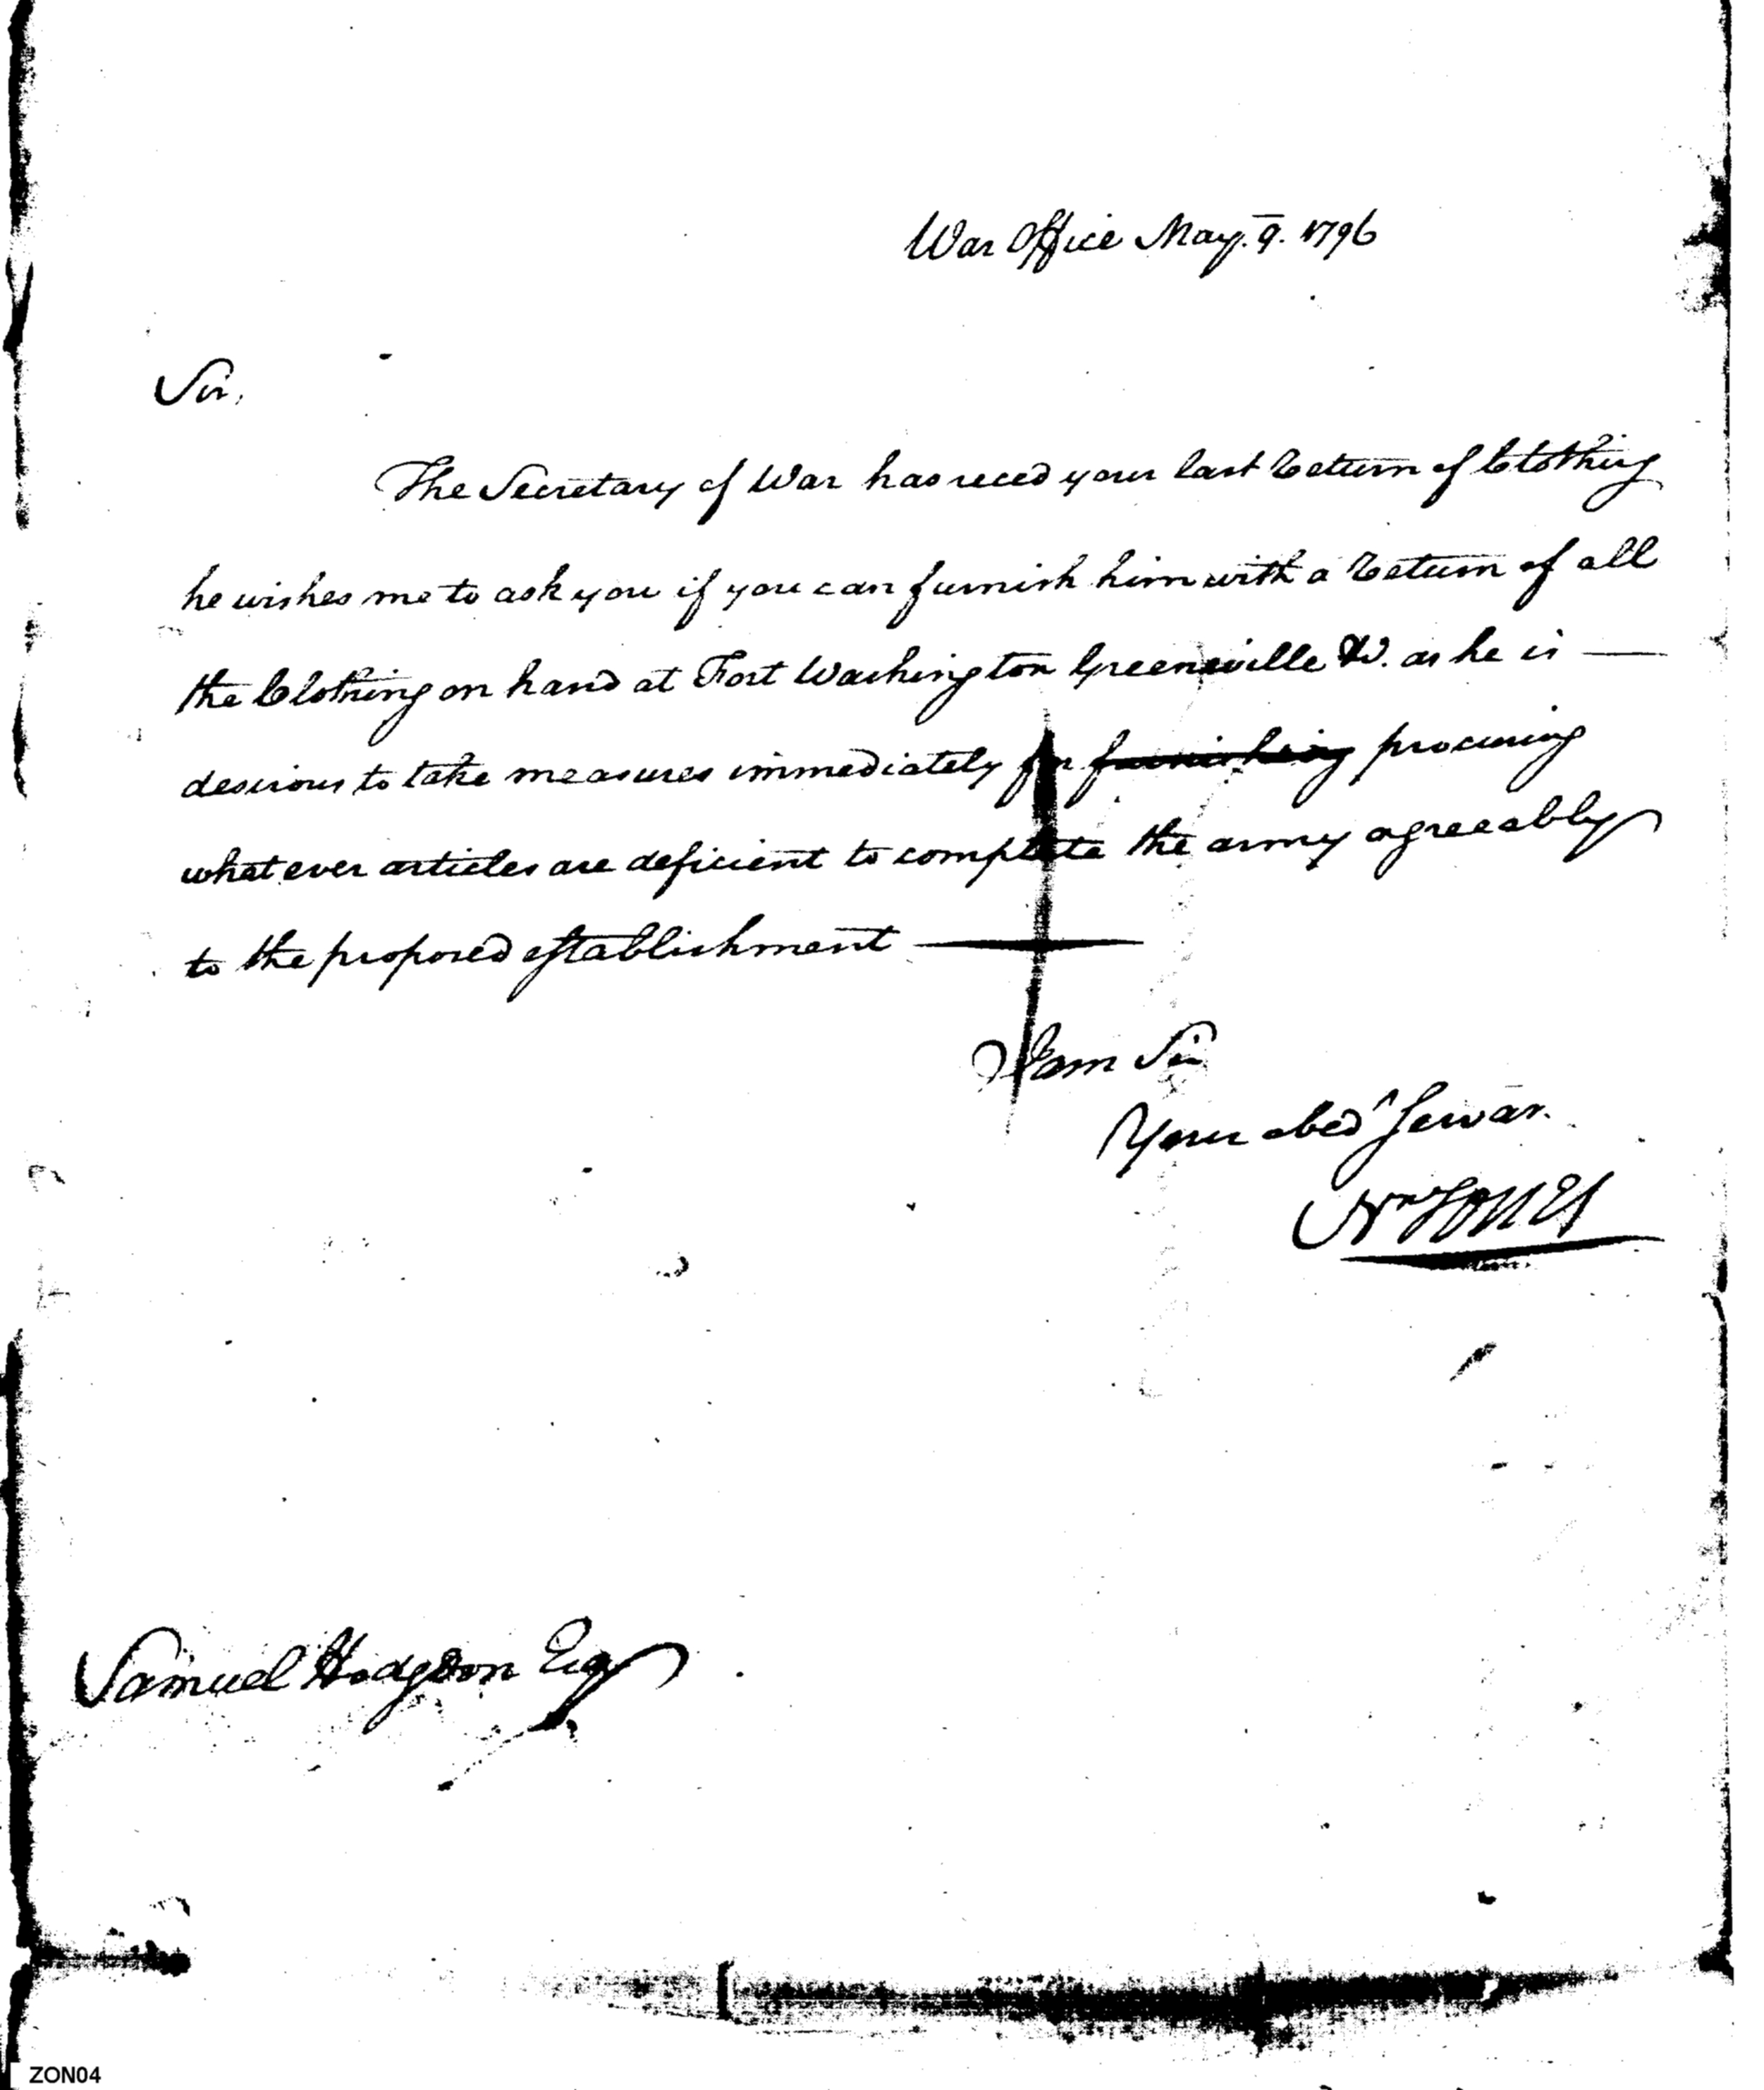 War Office May. 9. 1796
Sir,
The Secretary of War has reced your last Return of Clothing
he wishes me to ask you if you can furnish him with a Return of all
the Clothing on hand at Fort Washington Greeneville &c. as he is —
desirous to take measures immediately for furnishing procuring
what ever articles are deficient to complete the army agreeably
to the proposed establishment —
I am Sir
Your obedt Servan.
Wm Jones
Samuel Hodgdon Esq
ZON04